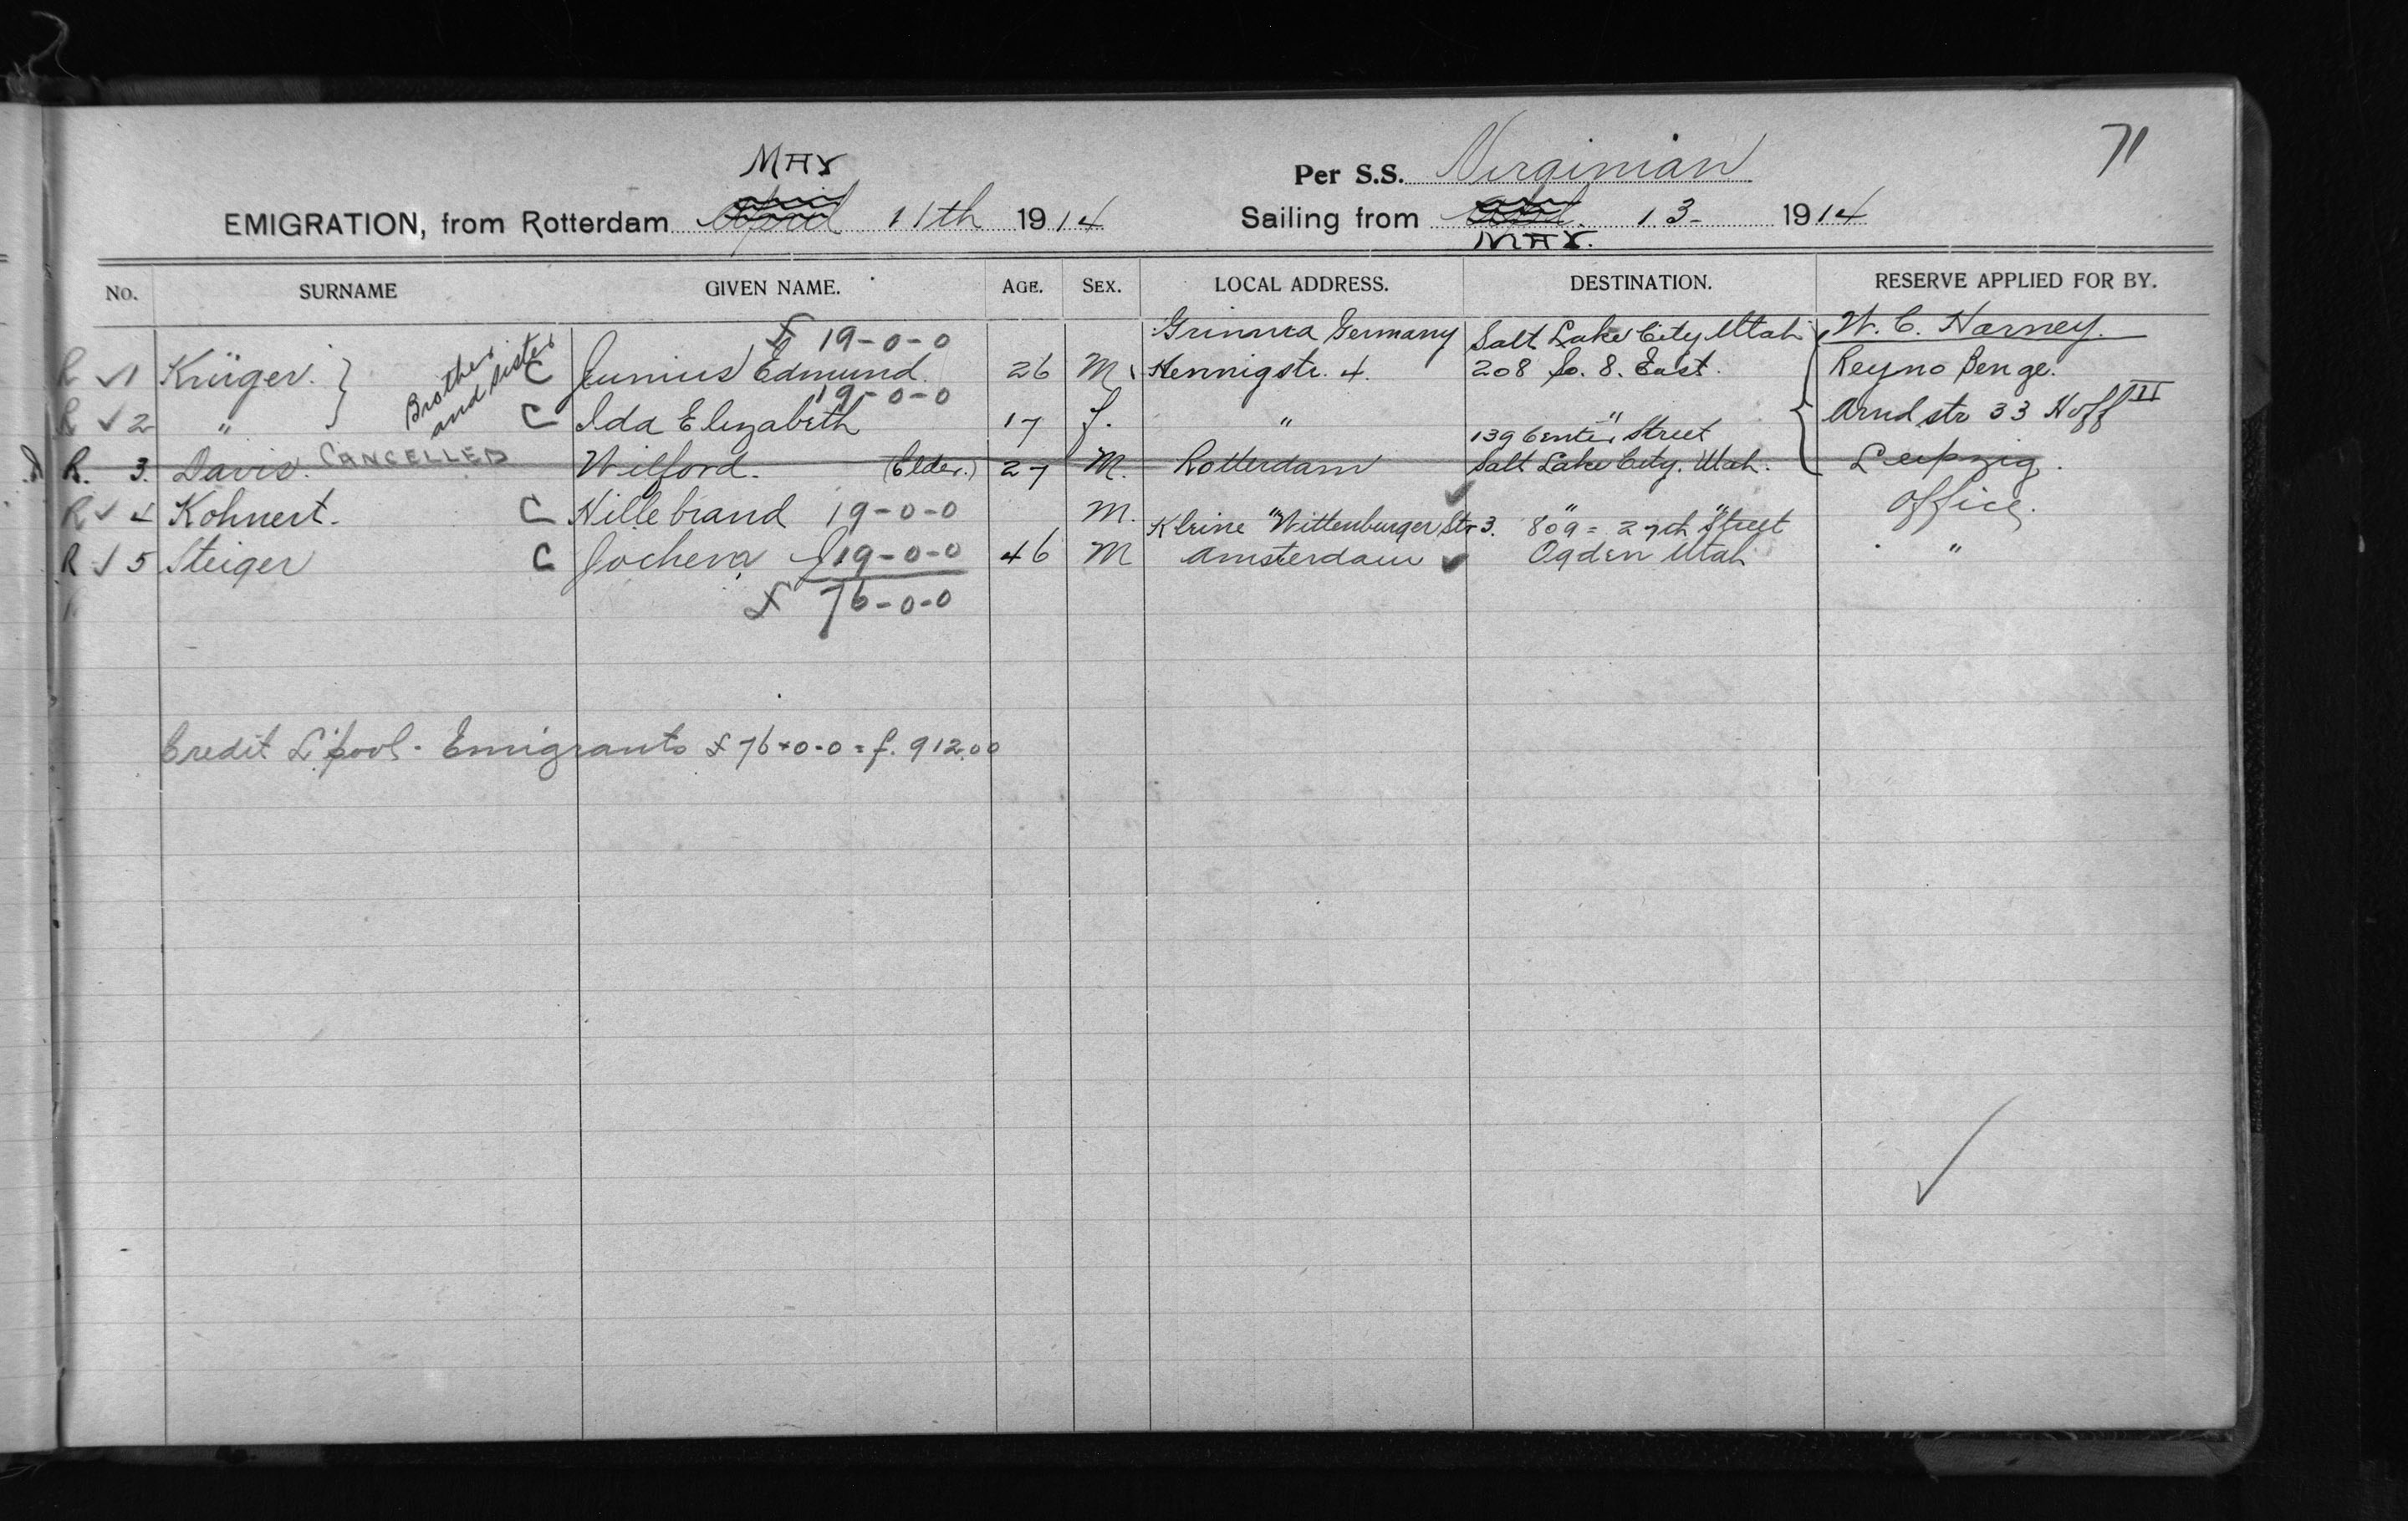 71
MAY
Per S.S. Virginian
EMIGRATION, from Rotterdam April 11th 1914
Sailing from 13- 1914
MAY.
No. SURNAME GIVEN NAME. AGE. SEX. LOCAL ADDRESS. DESTINATION. RESERVE APPLIED FOR BY.
£ 19-0-0 Grimma Germany Salt Lake City Utah W. C. Harney.
R ✓ 1 Krüger. } Brother and Sister C Junius Edmund 26 M. Hennigstr. 4. 208 So. 8. East. Reyno Benge.
19-0-0
R ✓ 2 " C Ida Elizabeth 17 f. " " Arndstr 33 Hoff II
139 Center Street
R. 3. Davis. CANCELLED Wilford. (Elder.) 27 M. Rotterdam Salt Lake City. Utah. Leipzig.
R ✓ 4 Kohnert. C Hillebrand 19-0-0 M. " " " Office.
Kleine Wittenburger Str 3. 809 = 27th Street
R ✓ 5 Steiger C Jochem £19-0-0 46 M Amsterdam ✓ Ogden Utah "
R
£ 76-0-0
Credit L'pool - Emigrants £ 76-0-0 = f. 912.00